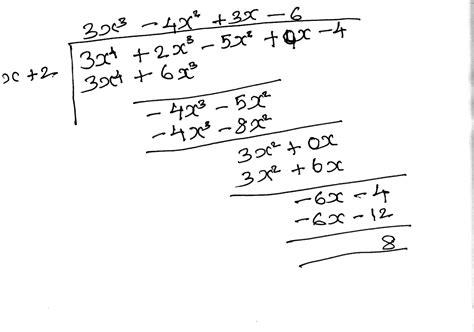 3x³ - 4x² + 3x - 6
x + 2 3x⁴ + 2x³ - 5x² + 0x - 4
3x⁴ + 6x³
-4x³ - 5x²
-4x³ - 8x²
3x² + 0x
3x² + 6x
-6x - 4
-6x - 12
8